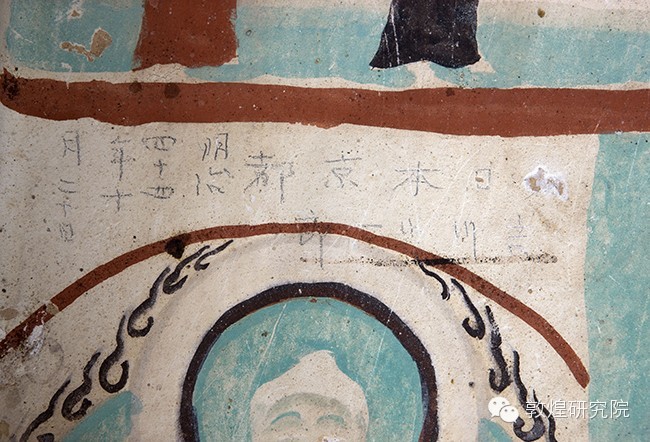 日本京都
吉川小一郎
明治
四十四
年十
月二十四
敦煌研究院